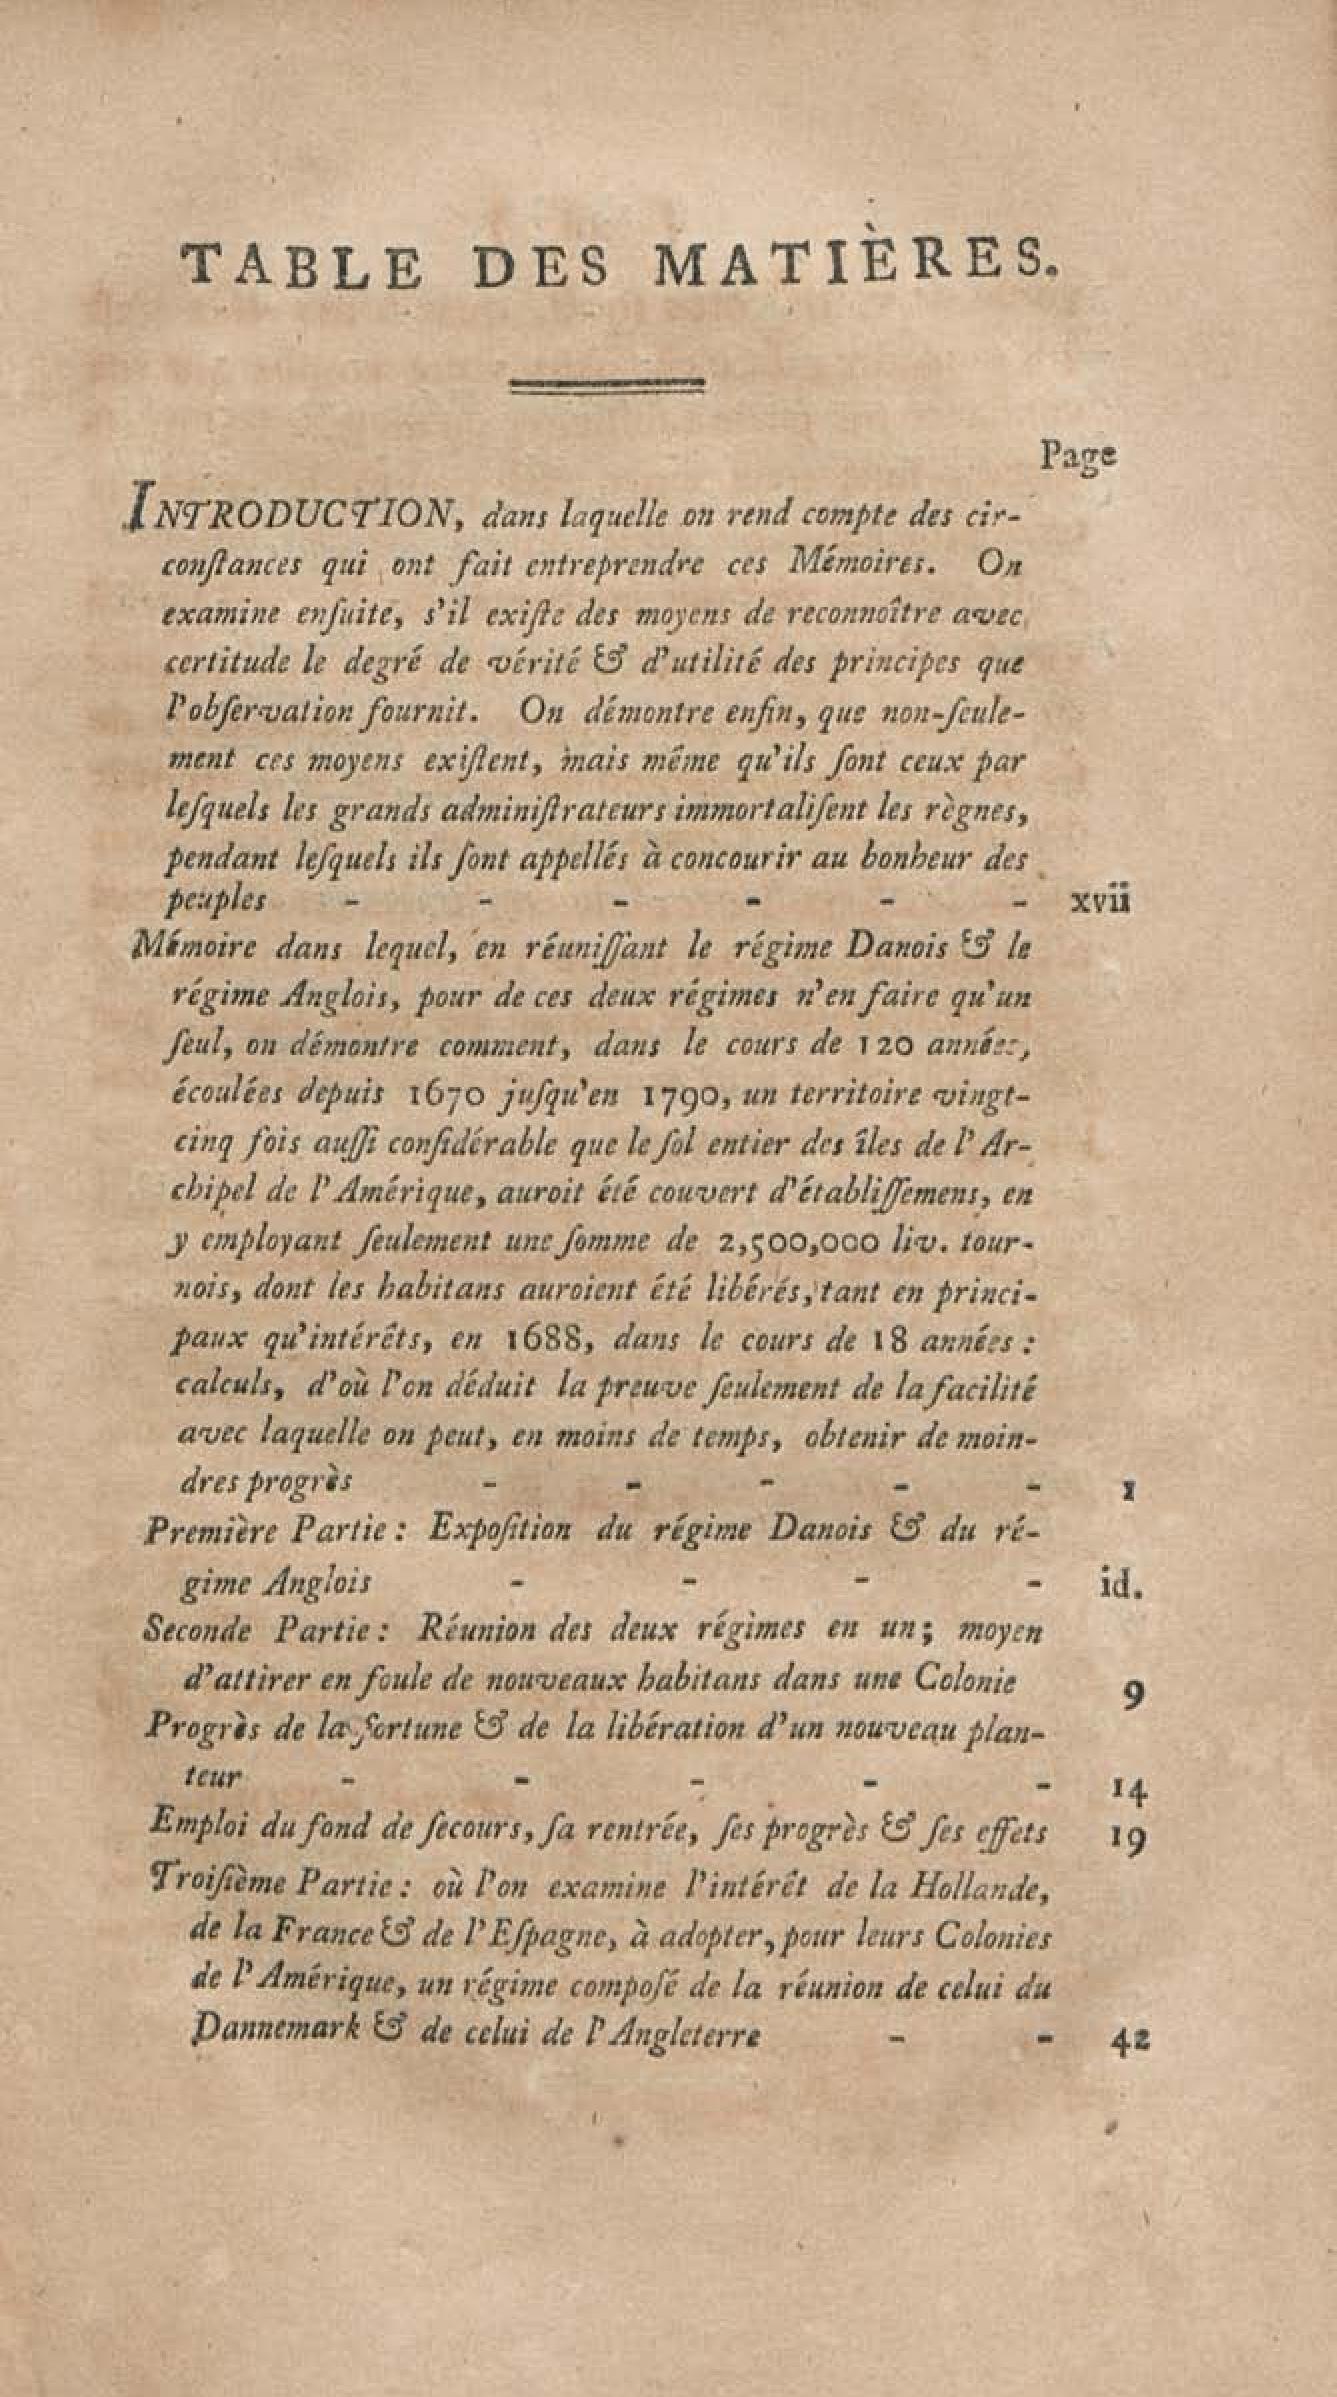 TABLE DES MATIÈRES.
Page
INTRODUCTION, dans laquelle on rend compte des cir-
conſtances qui ont fait entreprendre ces Mémoires. On
examine enſuite, s'il exiſte des moyens de reconnoître avec
certitude le degré de vérité & d'utilité des principes que
l'obſervation fournit. On démontre enfin, que non-ſeule-
ment ces moyens exiſtent, mais même qu'ils ſont ceux par
leſquels les grands adminiſtrateurs immortaliſent les règnes,
pendant leſquels ils ſont appellés à concourir au bonheur des
peuples - - - - - - xvii
Mémoire dans lequel, en réuniſſant le régime Danois & le
régime Anglois, pour de ces deux régimes n'en faire qu'un
ſeul, on démontre comment, dans le cours de 120 années,
écoulées depuis 1670 juſqu'en 1790, un territoire vingt-
cinq fois auſſi conſidérable que le ſol entier des îles de l'Ar-
chipel de l'Amérique, auroit été couvert d'établiſſemens, en
y employant ſeulement une ſomme de 2,500,000 liv. tour-
nois, dont les habitans auroient été libérés, tant en princi-
paux qu'intérêts, en 1688, dans le cours de 18 années :
calculs, d'où l'on déduit la preuve ſeulement de la facilité
avec laquelle on peut, en moins de temps, obtenir de moin-
dres progrès - - - - - 1
Première Partie : Expoſition du régime Danois & du ré-
gime Anglois - - - - id.
Seconde Partie : Réunion des deux régimes en un; moyen
d'attirer en foule de nouveaux habitans dans une Colonie 9
Progrès de la fortune & de la libération d'un nouveau plan-
teur - - - - - 14
Emploi du fond de ſecours, ſa rentrée, ſes progrès & ſes effets 19
Troiſième Partie : où l'on examine l'intérêt de la Hollande,
de la France & de l'Eſpagne, à adopter, pour leurs Colonies
de l'Amérique, un régime compoſé de la réunion de celui du
Dannemark & de celui de l'Angleterre - - 42